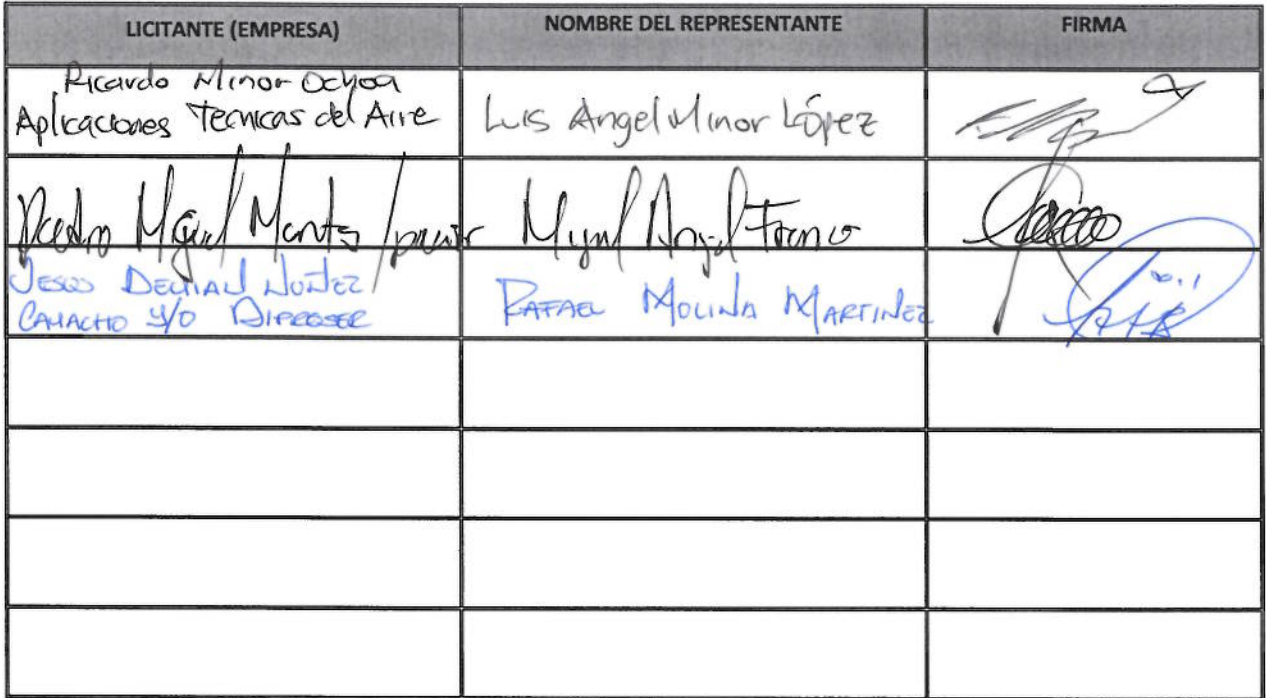 LICITANTE (EMPRESA) NOMBRE DEL REPRESENTANTE FIRMA
Ricardo Minor Ochoa
Aplicaciones Tecnicas del Aire Luis Angel Minor López
Miguel Angel Franco
JESUS NUÑEZ
CAMACHO Y/O DIPROSER RAFAEL MOLINA MARTINEZ